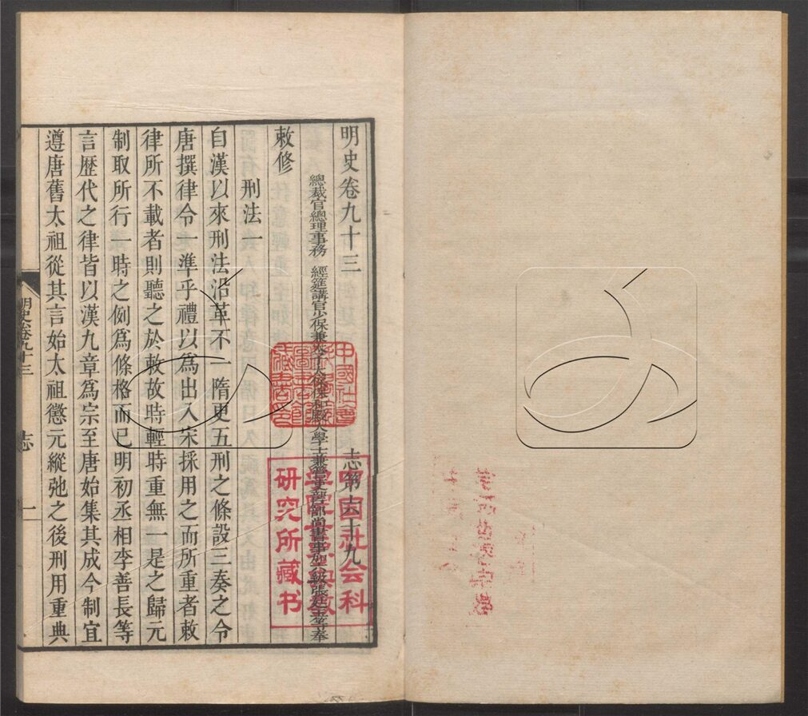 明史卷九十三
志第六十九
總裁官總理事務
經筵講官少保兼太子太保保和殿大學士兼管吏部戶部尚書事加六級張廷玉等奉
敕修
刑法一
自漢以來刑法沿革不一隋更五刑之條設三奏之令
唐撰律令一準乎禮以爲出入宋採用之而所重者敕
律所不載者則聽之於敕故時輕時重無一是之歸元
制取所行一時之例爲條格而已明初丞相李善長等
言歷代之律皆以漢九章爲宗至唐始集其成今制宜
遵唐舊太祖從其言始太祖懲元縱弛之後刑用重典
明史卷九十三
志
一
中國社會科
學院
研究所藏书